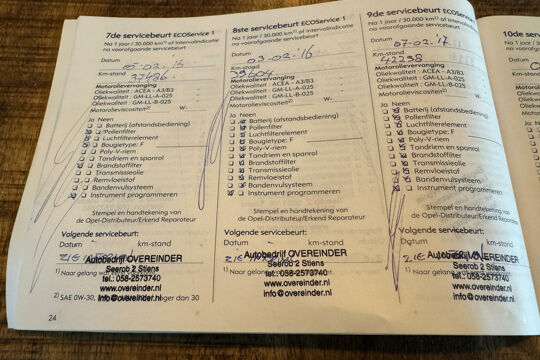 7de servicebeurt ECOService 1
Na 1 jaar / 30.000 km¹⁾ of intervalindicatie
na voorafgaande servicebeurt.
Datum 05-02-'15
Km-stand 37486
Motorolieverversing
Oliekwaliteit : ACEA - A3/B3
Oliekwaliteit : GM-LL-A-025
Oliekwaliteit : GM-LL-B-025
Motorolieviscositeit²⁾ W-
Ja Neen
Batterij (afstandsbediening)
Pollenfilter
Luchtfilterelement
Bougietype: F
Poly-V-riem
Tandriem en spanrol
Brandstoffilter
Transmissieolie
Remvloeistof
Bandenvulsysteem
Instrument programmeren
Stempel en handtekening van
de Opel-Distributeur/Erkend Reparateur
Volgende servicebeurt:
Datum km-stand
ZIE
Autobedrijf OVEREINDER
Seerob 2 Stiens
tel.: 058-2573740
www.overeinder.nl
info@overeinder.nl
1) Naar gelang
2) SAE 0W-30, lager dan 30
24
8ste servicebeurt ECOService 1
Na 1 jaar / 30.000 km¹⁾ of intervalindicatie
na voorafgaande servicebeurt.
Datum 03-02-'16
Km-stand 39604
Motorolieverversing
Oliekwaliteit : ACEA - A3/B3
Oliekwaliteit : GM-LL-A-025
Oliekwaliteit : GM-LL-B-025
Motorolieviscositeit²⁾ W-
Ja Neen
Batterij (afstandsbediening)
Pollenfilter
Luchtfilterelement
Bougietype: F
Poly-V-riem
Tandriem en spanrol
Brandstoffilter
Transmissieolie
Remvloeistof
Bandenvulsysteem
Instrument programmeren
Stempel en handtekening van
de Opel-Distributeur/Erkend Reparateur
Volgende servicebeurt:
Datum km-stand
Autobedrijf OVEREINDER
Seerob 2 Stiens
tel.: 058-2573740
www.overeinder.nl
info@overeinder.nl
1) Naar gelang
9de servicebeurt ECOService 1
Na 1 jaar / 30.000 km¹⁾ of intervalindicatie
na voorafgaande servicebeurt.
Datum 07-02-'17
Km-stand 42298
Motorolieverversing
Oliekwaliteit : ACEA - A3/B3
Oliekwaliteit : GM-LL-A-025
Oliekwaliteit : GM-LL-B-025
Motorolieviscositeit²⁾
Ja Neen
Batterij (afstandsbediening)
Pollenfilter
Luchtfilterelement
Bougietype: F
Poly-V-riem
Tandriem en spanrol
Brandstoffilter
Transmissieolie
Remvloeistof
Bandenvulsysteem
Instrument programmeren
Stempel en handtekening van
de Opel-Distributeur/Erkend Reparateur
Volgende servicebeurt:
Datum km-stand
ZIE
Autobedrijf OVEREINDER
Seerob 2 Stiens
tel.: 058-2573740
www.overeinder.nl
info@overeinder.nl
1) Naar gelang
10de